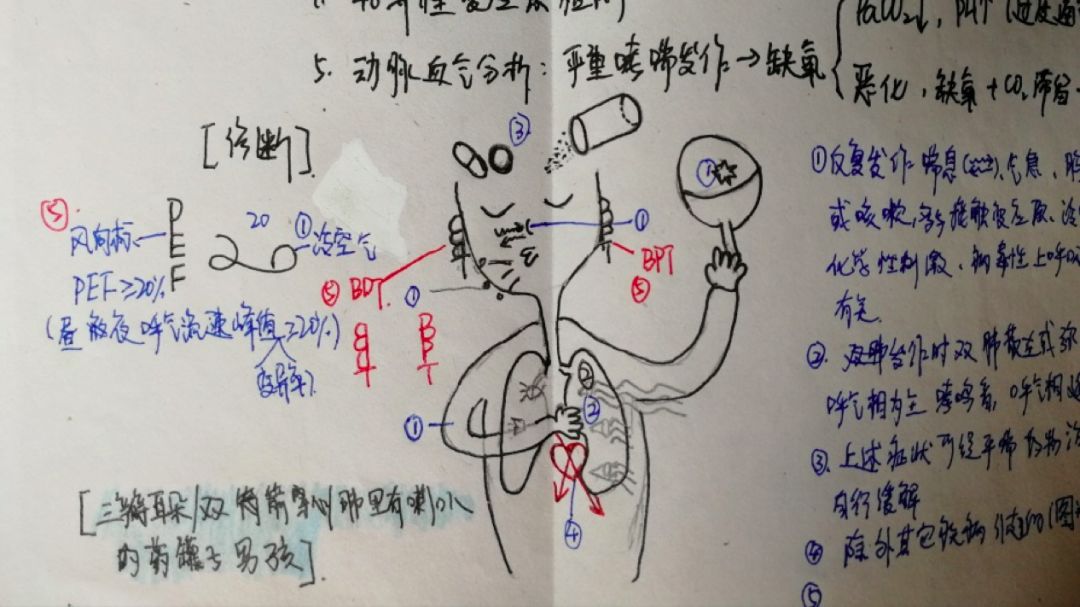 5. 动脉血气分析：严重哮喘发作→缺氧
PaCO₂↓，PH↑（过度通
恶化，缺氧+CO₂滞留
[诊断]
③
⑤
风向标
PEF
20
①冷空气
PEF≥20%
(昼夜呼气流速峰值≥20%)
变异率
⑤BDT
①
BPT
⑤
①
BPT
①
②
④
①反复发作喘息、气急、胸
或咳嗽，多与接触变应原、冷
化学性刺激、病毒性上呼吸
有关
②发作时双肺散在或弥
呼气相为主哮鸣音，呼气相延
③上述症状可经平喘药物治
自行缓解
④除外其它疾病
⑤
[三瓣耳朵/双箭穿心/那里有喇叭
的药罐子男孩]